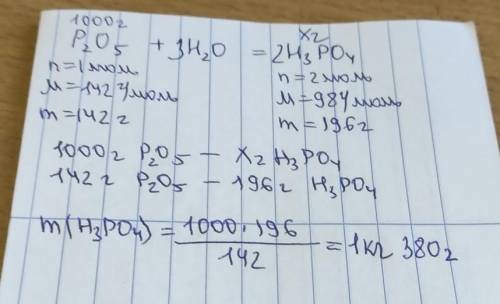 1000г xг
P₂O₅ + 3H₂O = 2H₃PO₄
n=1моль n=2моль
M=142г/моль M=98г/моль
m=142г m=196г
1000г P₂O₅ — xг H₃PO₄
142г P₂O₅ — 196г H₃PO₄
m(H₃PO₄) = 1000·196 / 142 = 1кг 380г